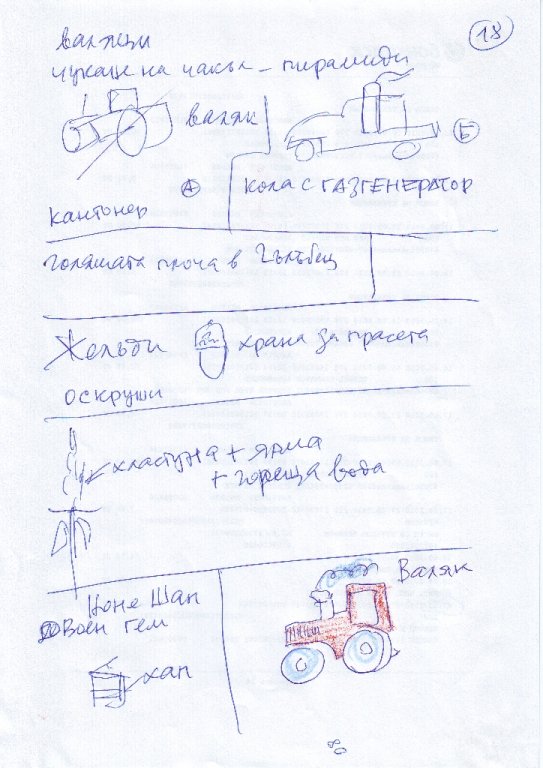 18
валяци
чукане на чакъл - пирамиди
валяк
А
кантонер
Б
кола с ГАЗГЕНЕРАТОР
голямата плоча в Гълъбец
Жельди
храна за прасета
оскруши
хластуна + ярма
+ гореща вода
Коне Шап
Воен гем
хап
Валяк